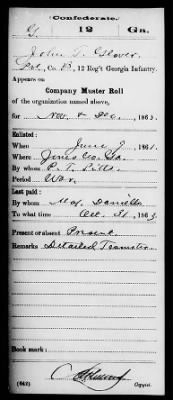 Confederate.
G 12 Ga.
John T. Glover
Pvt., Co. B, 12 Reg't Georgia Infantry.
Appears on
Company Muster Roll
of the organization named above,
for Nov & Dec, 1863.
Enlisted:
When June 9, 1861.
Where Jones Co. Ga.
By whom P. T. Pitts
Period War.
Last paid:
By whom Maj. Daniells
To what time Oct. 31, 1863.
Present or absent Present
Remarks Detailed Teamster
Book mark:
(642) Copyist.